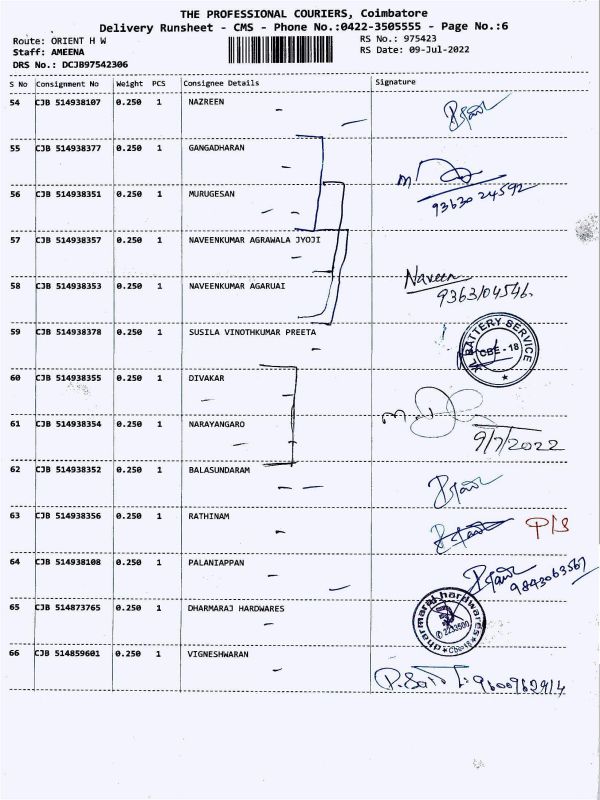 THE PROFESSIONAL COURIERS, Coimbatore
Delivery Runsheet - CMS - Phone No.:0422-3505555 - Page No.:6
Route: ORIENT H W
RS No.: 975423
Staff: AMEENA
RS Date: 09-Jul-2022
DRS No.: DCJB97542306
S No Consignment No Weight PCS Consignee Details Signature
54 CJB 514938107 0.250 1 NAZREEN
55 CJB 514938377 0.250 1 GANGADHARAN
56 CJB 514938351 0.250 1 MURUGESAN
9363024592
57 CJB 514938357 0.250 1 NAVEENKUMAR AGRAWALA JYOJI
58 CJB 514938353 0.250 1 NAVEENKUMAR AGARUAI Naveen
9363104546.
59 CJB 514938378 0.250 1 SUSILA VINOTHKUMAR PREETA
BATTERY SERVICE
CBE - 18
60 CJB 514938355 0.250 1 DIVAKAR
61 CJB 514938354 0.250 1 NARAYANGARO
9/7/2022
62 CJB 514938352 0.250 1 BALASUNDARAM
63 CJB 514938356 0.250 1 RATHINAM
64 CJB 514938108 0.250 1 PALANIAPPAN
9843063567
65 CJB 514873765 0.250 1 DHARMARAJ HARDWARES
dharmaraj hardwares
2233500
Cbe-18
66 CJB 514859601 0.250 1 VIGNESHWARAN
9600962914